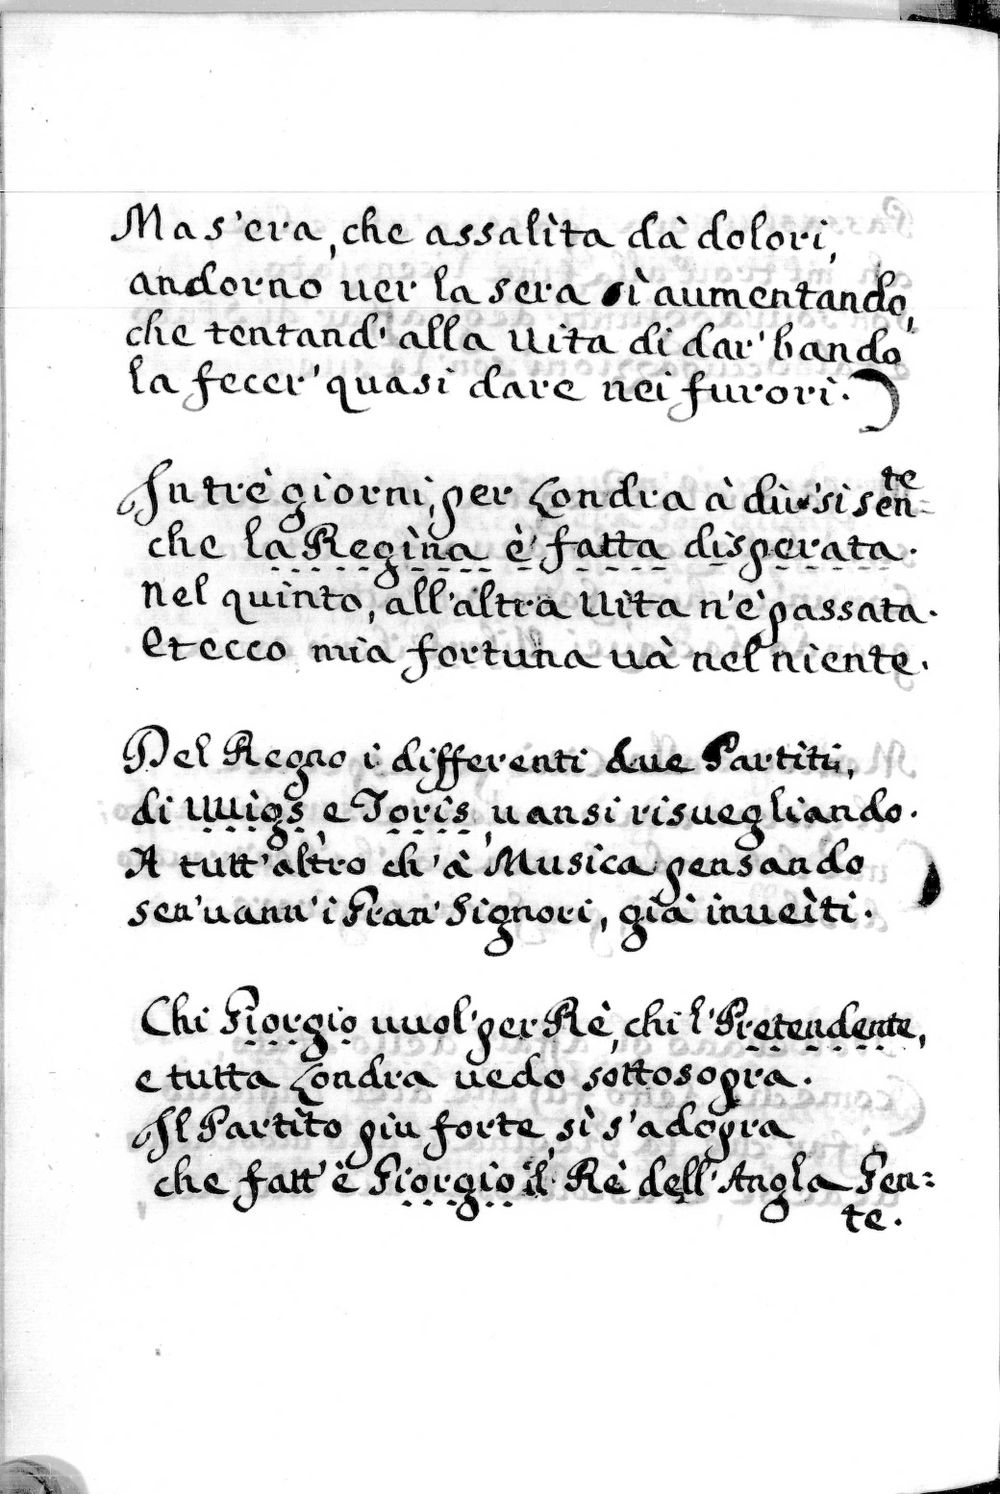 Ma s'era, che assalìta dà dolori,
andorno uer la sera sì aumentando,
che tentand' alla Uita di dar' bando
la fecer' quasi dare nei furori.
In trè giorni, per Londra à dir' si sente
che la Regìna è' fatta disperata.
Nel quinto, all'altra Uita n'è passata.
Et ecco mia fortuna uà nel niente.
Del Regno i differenti due Partiti,
di UUigs, e Toris, uansi risuegliando.
A tutt'altro ch'à Musica pensando
sen'uann' i Gran' Signori, già inueìti.
Chi Giorgio uuol' per Rè, chi l'Pretendente,
e tutta Londra uedo sottosopra.
Il Partìto piu forte, sì s'adopra
che fatt' è Giorgio il Rè dell'Angla Gen=
te.